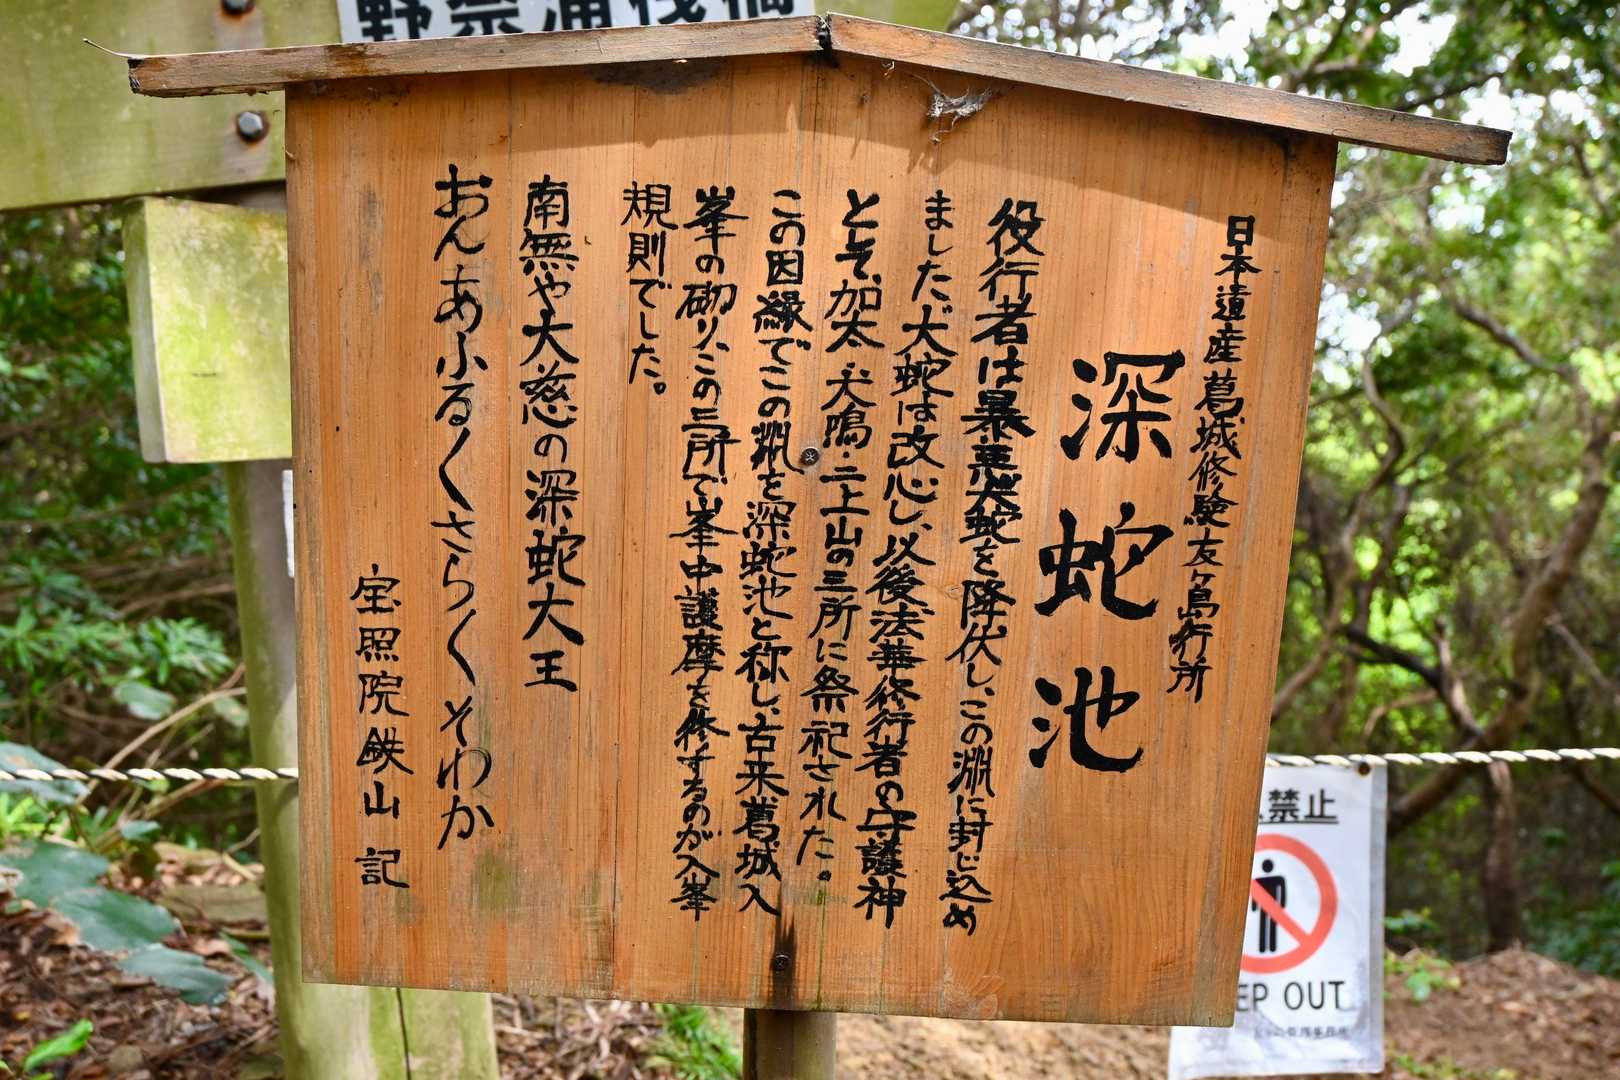 日本遺産葛城修験友ヶ島行所
深蛇池
役行者は暴悪大蛇を降伏し、この淵に封じ込め
ました、大蛇は改心し、以後法華修行者の守護神
として、加太・犬鳴・二上山の三所に祭祀された。
この因縁でこの淵を深蛇池と称し、古来葛城入
峯の砌り、この三所で峯中護摩を修するのが入峯
規則でした。
南無や大慈の深蛇大王
おんあふるくさらくそわか
宝照院鉄山 記
禁止
EP OUT